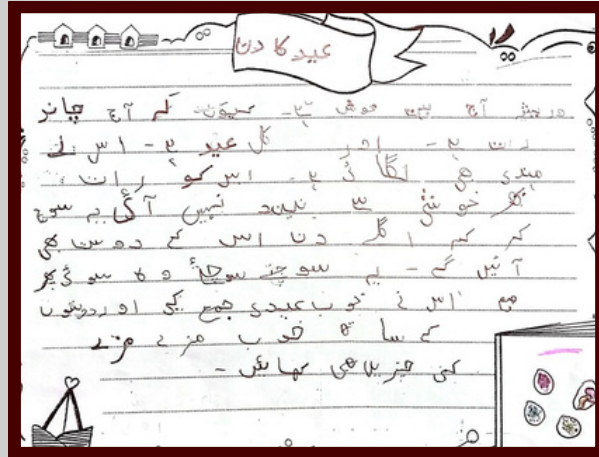 عید کا دن
آج بہت خوش ہے۔ کیوں کہ آج چاند
رات ہے۔ اور کل عید ہے۔ اس نے
مہندی بھی لگائی ہے۔ اس کو رات
بھر خوشی سے نیند نہیں آئی یہ سوچ
کر کہ اگلے دن اس کے دوست بھی
آئیں گے۔ یہ سوچتے سوچتے وہ سو گئ
اس نے خوب عیدی جمع کی اور دوستوں
کے ساتھ خوب مزے مزے
کی چیزیں بھی کھائی۔